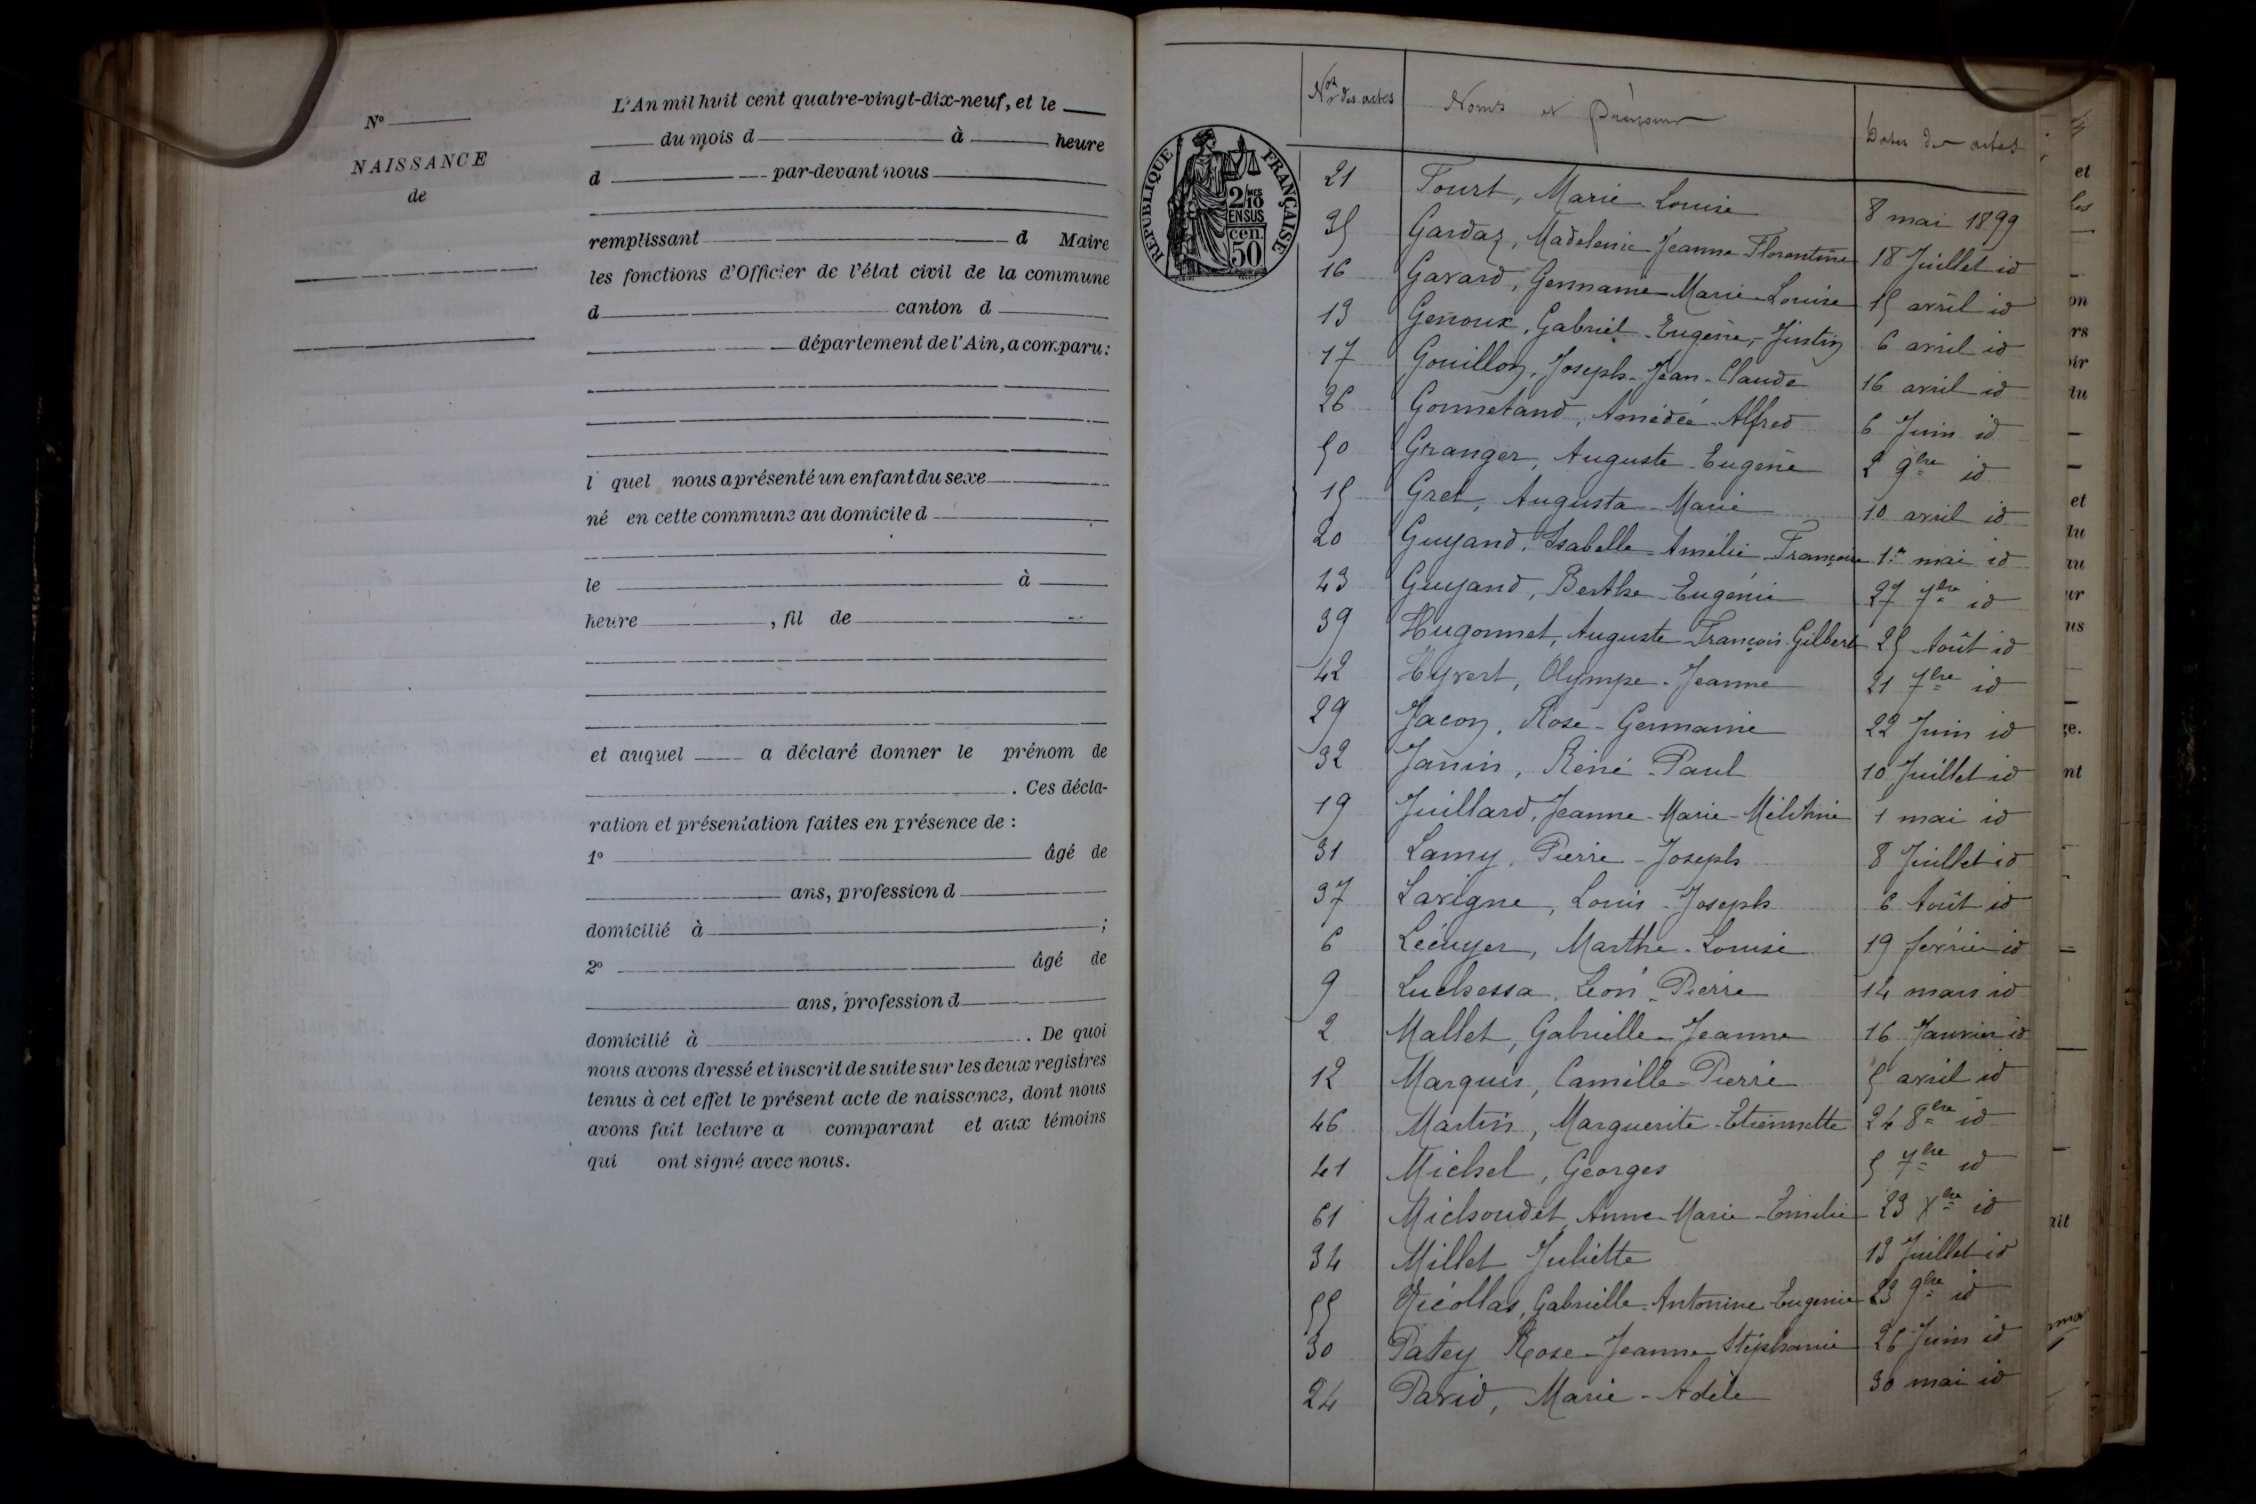 N°
NAISSANCE
de
L'An mil huit cent quatre-vingt-dix-neuf, et le
du mois d à heure
d par-devant nous
remplissant d Maire
les fonctions d'Officier de l'état civil de la commune
d canton d
département de l'Ain, a comparu:
l quel nous a présenté un enfant du sexe
né en cette commune au domicile d
le à
heure , fil de
et auquel a déclaré donner le prénom de
. Ces décla-
ration et présentation faites en présence de :
1° âgé de
ans, profession d
domicilié à ;
2° âgé de
ans, profession d
domicilié à . De quoi
nous avons dressé et inscrit de suite sur les deux registres
tenus à cet effet le présent acte de naissance, dont nous
avons fait lecture a comparant et aux témoins
qui ont signé avec nous.
RÉPUBLIQUE FRANÇAISE
2/10 MES
EN SUS
50 cen.
Nos des actes Noms et Prénoms Dates des actes
21 Fourt, Marie-Louise 8 mai 1899
35 Gardaz, Madeleine Jeanne Florentine 18 Juillet id
16 Gavard, Germaine-Marie-Louise 15 avril id
13 Genoux, Gabriel-Eugène-Justin 6 avril id
17 Gouillon, Joseph-Jean-Claude 16 avril id
26 Gonnetand, Amédée-Alfred 6 Juin id
50 Granger, Auguste-Eugène 2 9bre id
15 Gret, Augusta-Marie 10 avril id
20 Guyand, Isabelle-Amélie-Françoise 1er mai id
43 Guyand, Berthe-Eugénie 27 7bre id
39 Hugonnet, Auguste-François-Gilbert 25 Août id
42 Hyvert, Olympe-Jeanne 21 7bre id
29 Jacon, Rose-Germaine 22 Juin id
32 Janin, Réné-Paul 10 Juillet id
19 Juillard, Jeanne-Marie-Mélitine 1 mai id
31 Lamy, Pierre-Joseph 8 Juillet id
37 Lavigne, Louis-Joseph 6 Août id
6 Lécuyer, Marthe-Louise 19 février id
9 Luchessa, Léon-Pierre 14 mars id
2 Mallet, Gabrielle-Jeanne 16 Janvier id
12 Marquis, Camille-Pierre 5 avril id
46 Martin, Marguerite-Etiennette 24 8bre id
41 Michel, Georges 5 7bre id
61 Michoudet, Anne-Marie-Emélie 23 Xbre id
34 Millet Juliette 13 Juillet id
55 Nicollas, Gabrielle-Antonine Eugenie 23 9bre id
30 Patey Rose-Jeanne-Stéphanie 26 Juin id
24 Pavid, Marie-Adèle 30 mai id